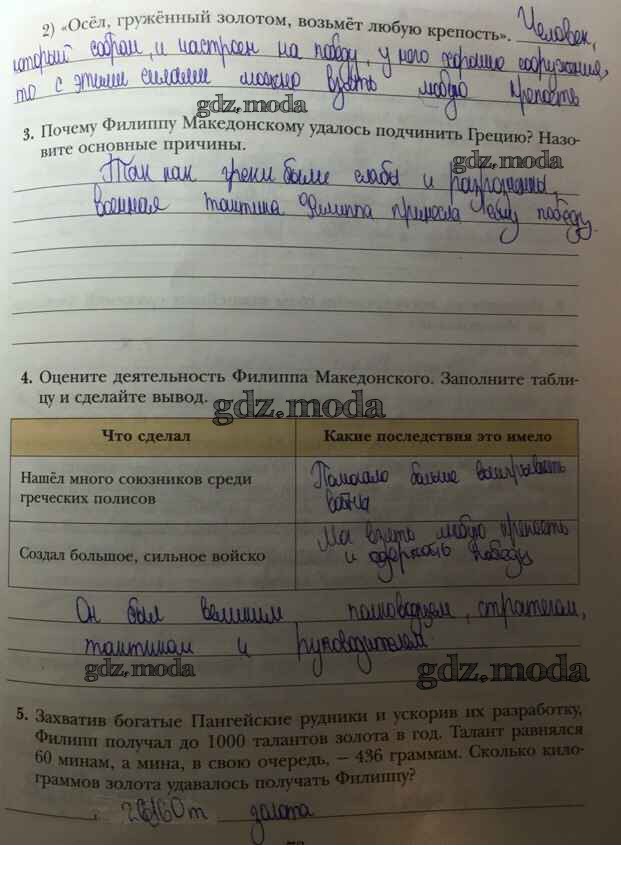 2) «Осёл, гружённый золотом, возьмёт любую крепость». Человек,
который собран, и настроен на победу, у него хорошие сооружения,
то с этими силами можно взять любую крепость
gdz.moda
3. Почему Филиппу Македонскому удалось подчинить Грецию? Назо-
вите основные причины.
gdz.moda
Так как греки были слабы и разрознены,
военная тактика Филиппа принесла ему победу.
4. Оцените деятельность Филиппа Македонского. Заполните табли-
цу и сделайте вывод.
gdz.moda
Что сделал Какие последствия это имело
Нашёл много союзников среди
греческих полисов
Помогало больше выигрывать
войны
Создал большое, сильное войско
Мог взять любую крепость
и одержать победу
Он был великим полководцем, стратегом,
тактиком и руководителем.
gdz.moda
gdz.moda
5. Захватив богатые Пангейские рудники и ускорив их разработку,
Филипп получал до 1000 талантов золота в год. Талант равнялся
60 минам, а мина, в свою очередь, – 436 граммам. Сколько кило-
граммов золота удавалось получать Филиппу?
золота
gdz.moda